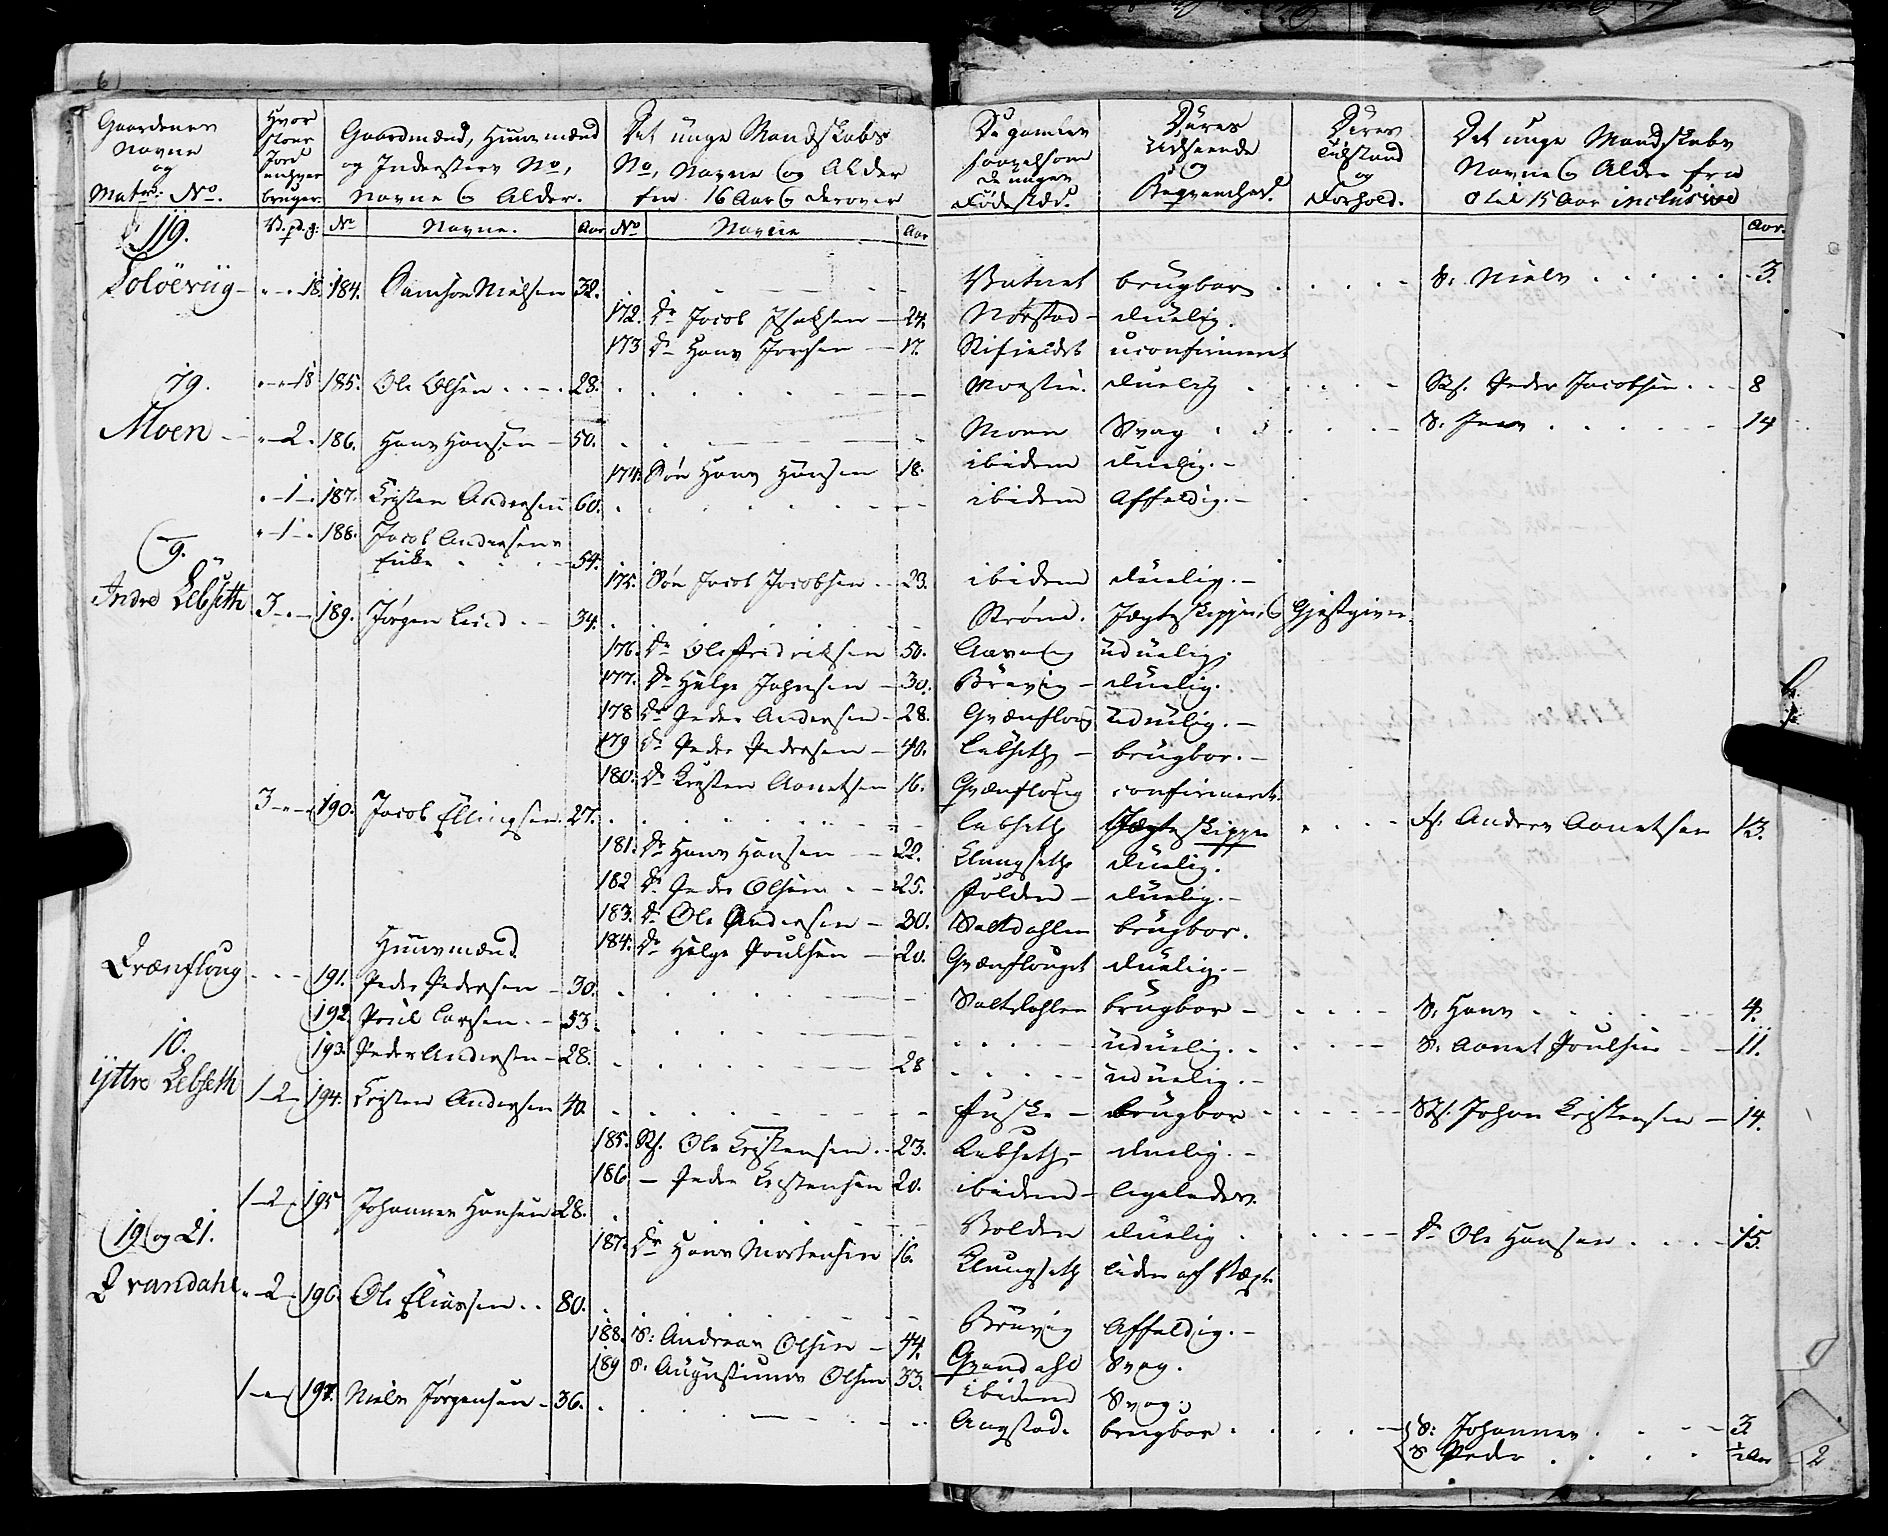 6
Gaardenes Navne og Matrs: No.
Hvor stor Jord enhver bruger.
Gaardmænd, Huusmænd og Inderster No, Navne & Alder.
Det unge Mandskabs No, Navne og Alder fra 16 Aar & derover
De gamles saavelsom de unges Fødested.
Deres Udseende og Beqvemhed.
Deres Tilstand og Forhold.
Det unge Mandskabs Navne & Alder fra 0 til 15 Aar inclusive
V. pd. g: No Navne. Aar No Navne Aar Aar.
119.
Soløeviig 18. 184. Samson Nielsen 32. Vatnet brugbar S. Niels 3.
172. Dr Jacob Isaksen 24. Nørstad duelig.
173 Dr Hans 17. uconfirmert
79. 18 185. Ole Olsen 28. duelig Peder Jacobsen 8
Moen 2 186. Hans Hansen 50. Moen Svag S. Jens 14
174. Søn Hans Hansen 18. ibidem duelig.
1 187. Cristen Andersen 60. ibidem Affeldig.
1 188. Jacob Andersens Enke 54.
175. Søn Jacob Jacobsen 23. ibidem duelig.
9.
Indre Lebseth 3 189. Jørgen Lund 34. Strøm. Jægteskipper & Gjestgiver
176. Dr Ole Fredriksen 50. uduelig.
177. Dr Helge Johnsen 30. Brevig duelig.
178 Dr Peder Andersen 28. Qvænfloug uduelig.
179 Dr Peder Pedersen 40. Lebseth brugbar.
180. Dr Cristen Aonetsen 16. Qvænfloug confirmert.
3 190. Jacob Ellingsen 27. Lebseth Jægteskipper Anders Aonetsen 13.
181. Dr Hans Hansen 22. Klungseth duelig.
182 Dr Peder Olsen 25. Folden duelig.
183. Dr Ole Andersen 30. Saltdahlen brugbar.
184. Dr Helge Poulsen 20. Qvænflouget duelig.
Huusmænd
Qvænfloug 191. Peder Pedersen 30. Saltdahlen brugbar S. Hans 4.
192 Poul Larsen 53 uduelig. S. Aonet Poulsen 11.
193. Peder Andersen 28. 28 uduelig.
10.
yttre Lebseth 1 2 194. Cristen Andersen 40. Fuske brugbar Johan Cristensen 14.
185. Ole Cristensen 23. Lebseth duelig.
186 Peder Cristensen 20. ibidem ligeledes.
1 2 195 Johannes Hansen 28. Bolden duelig Dr Ole Hansen 15.
187. Dr Hans Mortensen 16. Klungseth
19 og 21.
Qvandahl 2 196. Ole Eliassen 80. Brevig Affeldig.
188. S: Andreas Olsen 44. Qvandahl Svag.
189 S. Augustinus Olsen 33. ibidem Svag.
1 197. Niels Jørgensen 36. Angstad. brugbar S: Johannes 3.
S Peder ½ Aar 2